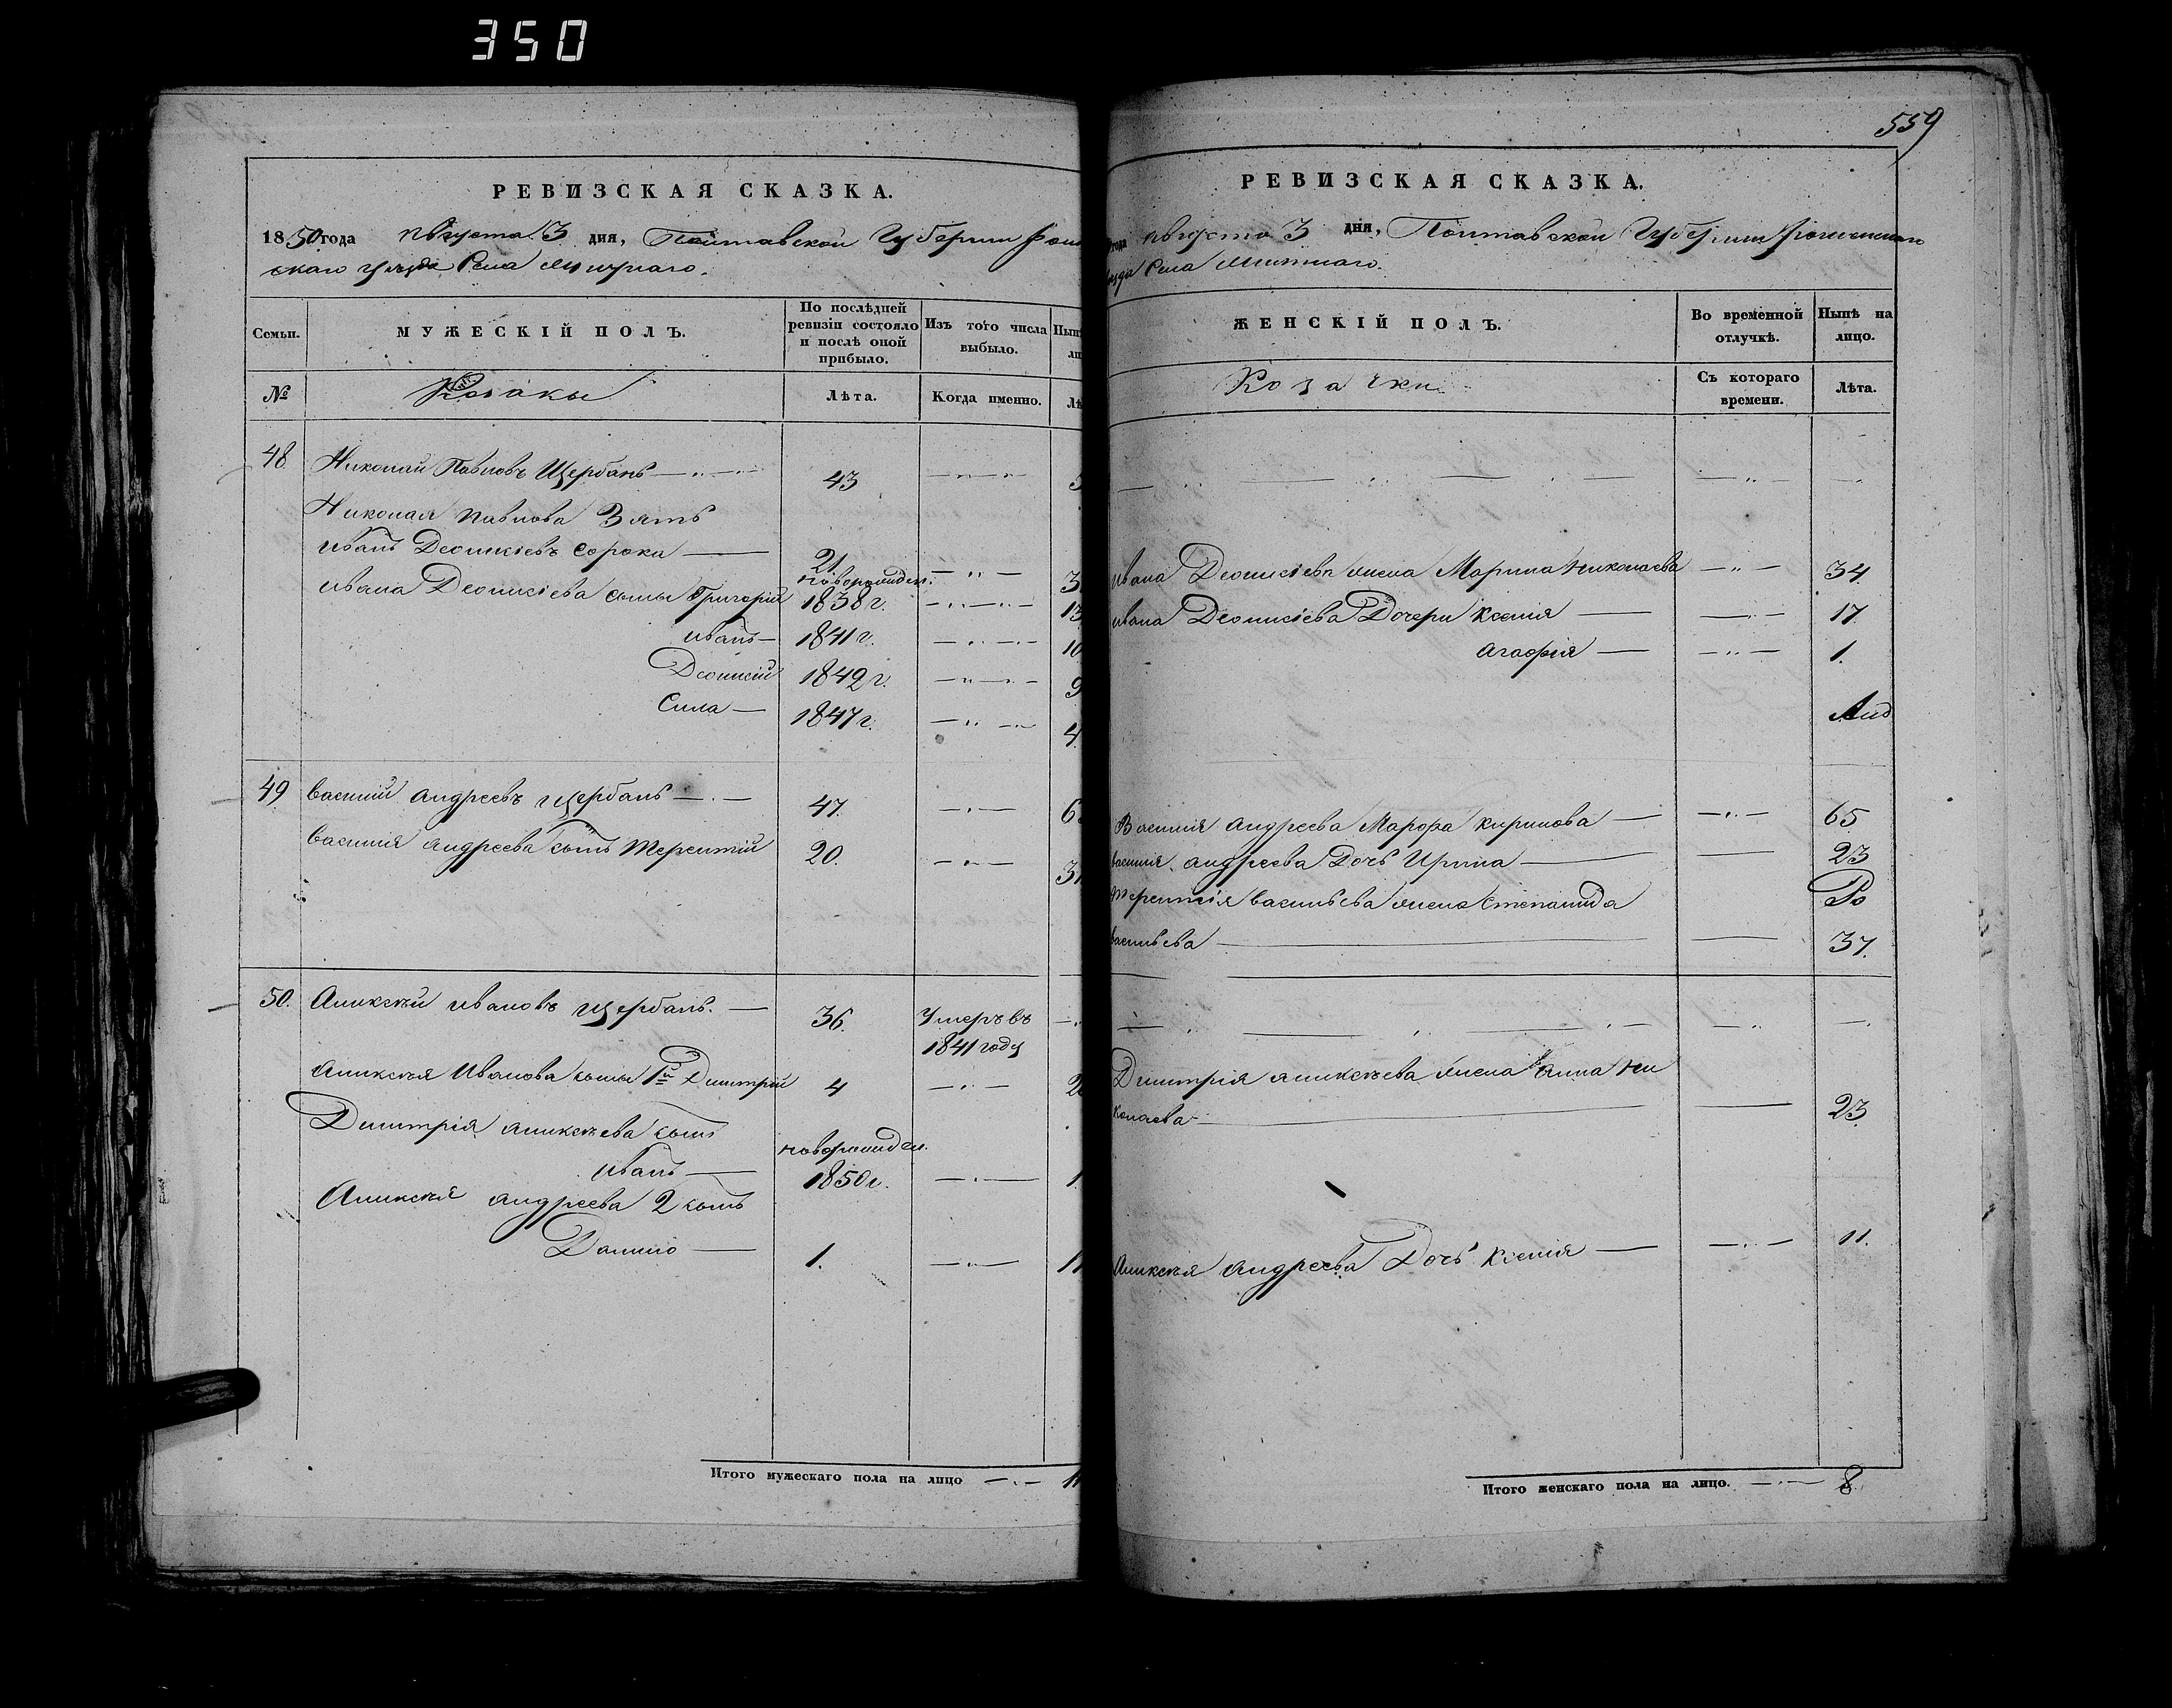 350
559
РЕВИЗСКАЯ СКАЗКА.
1850 года Августа 3 дня, Полтавской Губернии Ром
скаго уезда Села
Семьи.
МУЖЕСКІЙ ПОЛЪ.
По послѣдней ревизіи состояло и послѣ оной прибыло.
Изъ того числа выбыло.
№
Козаки
Лѣта.
Когда именно.
48. Николай Павловъ Щербань 43
Николая Павлова Зять
Иванъ Деонисіевъ Сорока 21
новорожден.
Ивана Деонисіева сыны Григорій 1838 г. 13
Иванъ 1841 г. 10
Деонисій 1842 г. 9
Сила 1847 г. 4.
49 Василий Андреевъ Щербань 47.
Василия Андреева сынъ Терентий 20.
50. Алексей Ивановъ Щербань. 36. Умеръ въ
1841 году
Алексея Иванова сыны 1й Димитрій 4
Димитрія Алексеева сынъ новорожден.
Иванъ 1850 г. 1
Алексея Андреева 2 сынъ
Данило 1. 11
Итого мужескаго пола на лицо
РЕВИЗСКАЯ СКАЗКА.
года Августа 3 дня, Полтавской Губернии Роменскаго
Села
ЖЕНСКІЙ ПОЛЪ.
Во временной отлучкѣ.
Нынѣ на лицо.
Козачки
Съ котораго времени.
Лѣта.
Ивана Деонисіева жена Марина Николаева 34.
Ивана Деонисіева Дочери Ксения 17
Агафия 1.
Василия Андреева Кирилова 65
Василия Андреева Дочь Ирина 23
Терентия Васильева жена Степанида
Васильева 37.
Димитрія Алексеева жена Анна Ни
колаева 23.
Алексея Андреева Дочь Ксения 11.
Итого женскаго пола на лицо. 8.